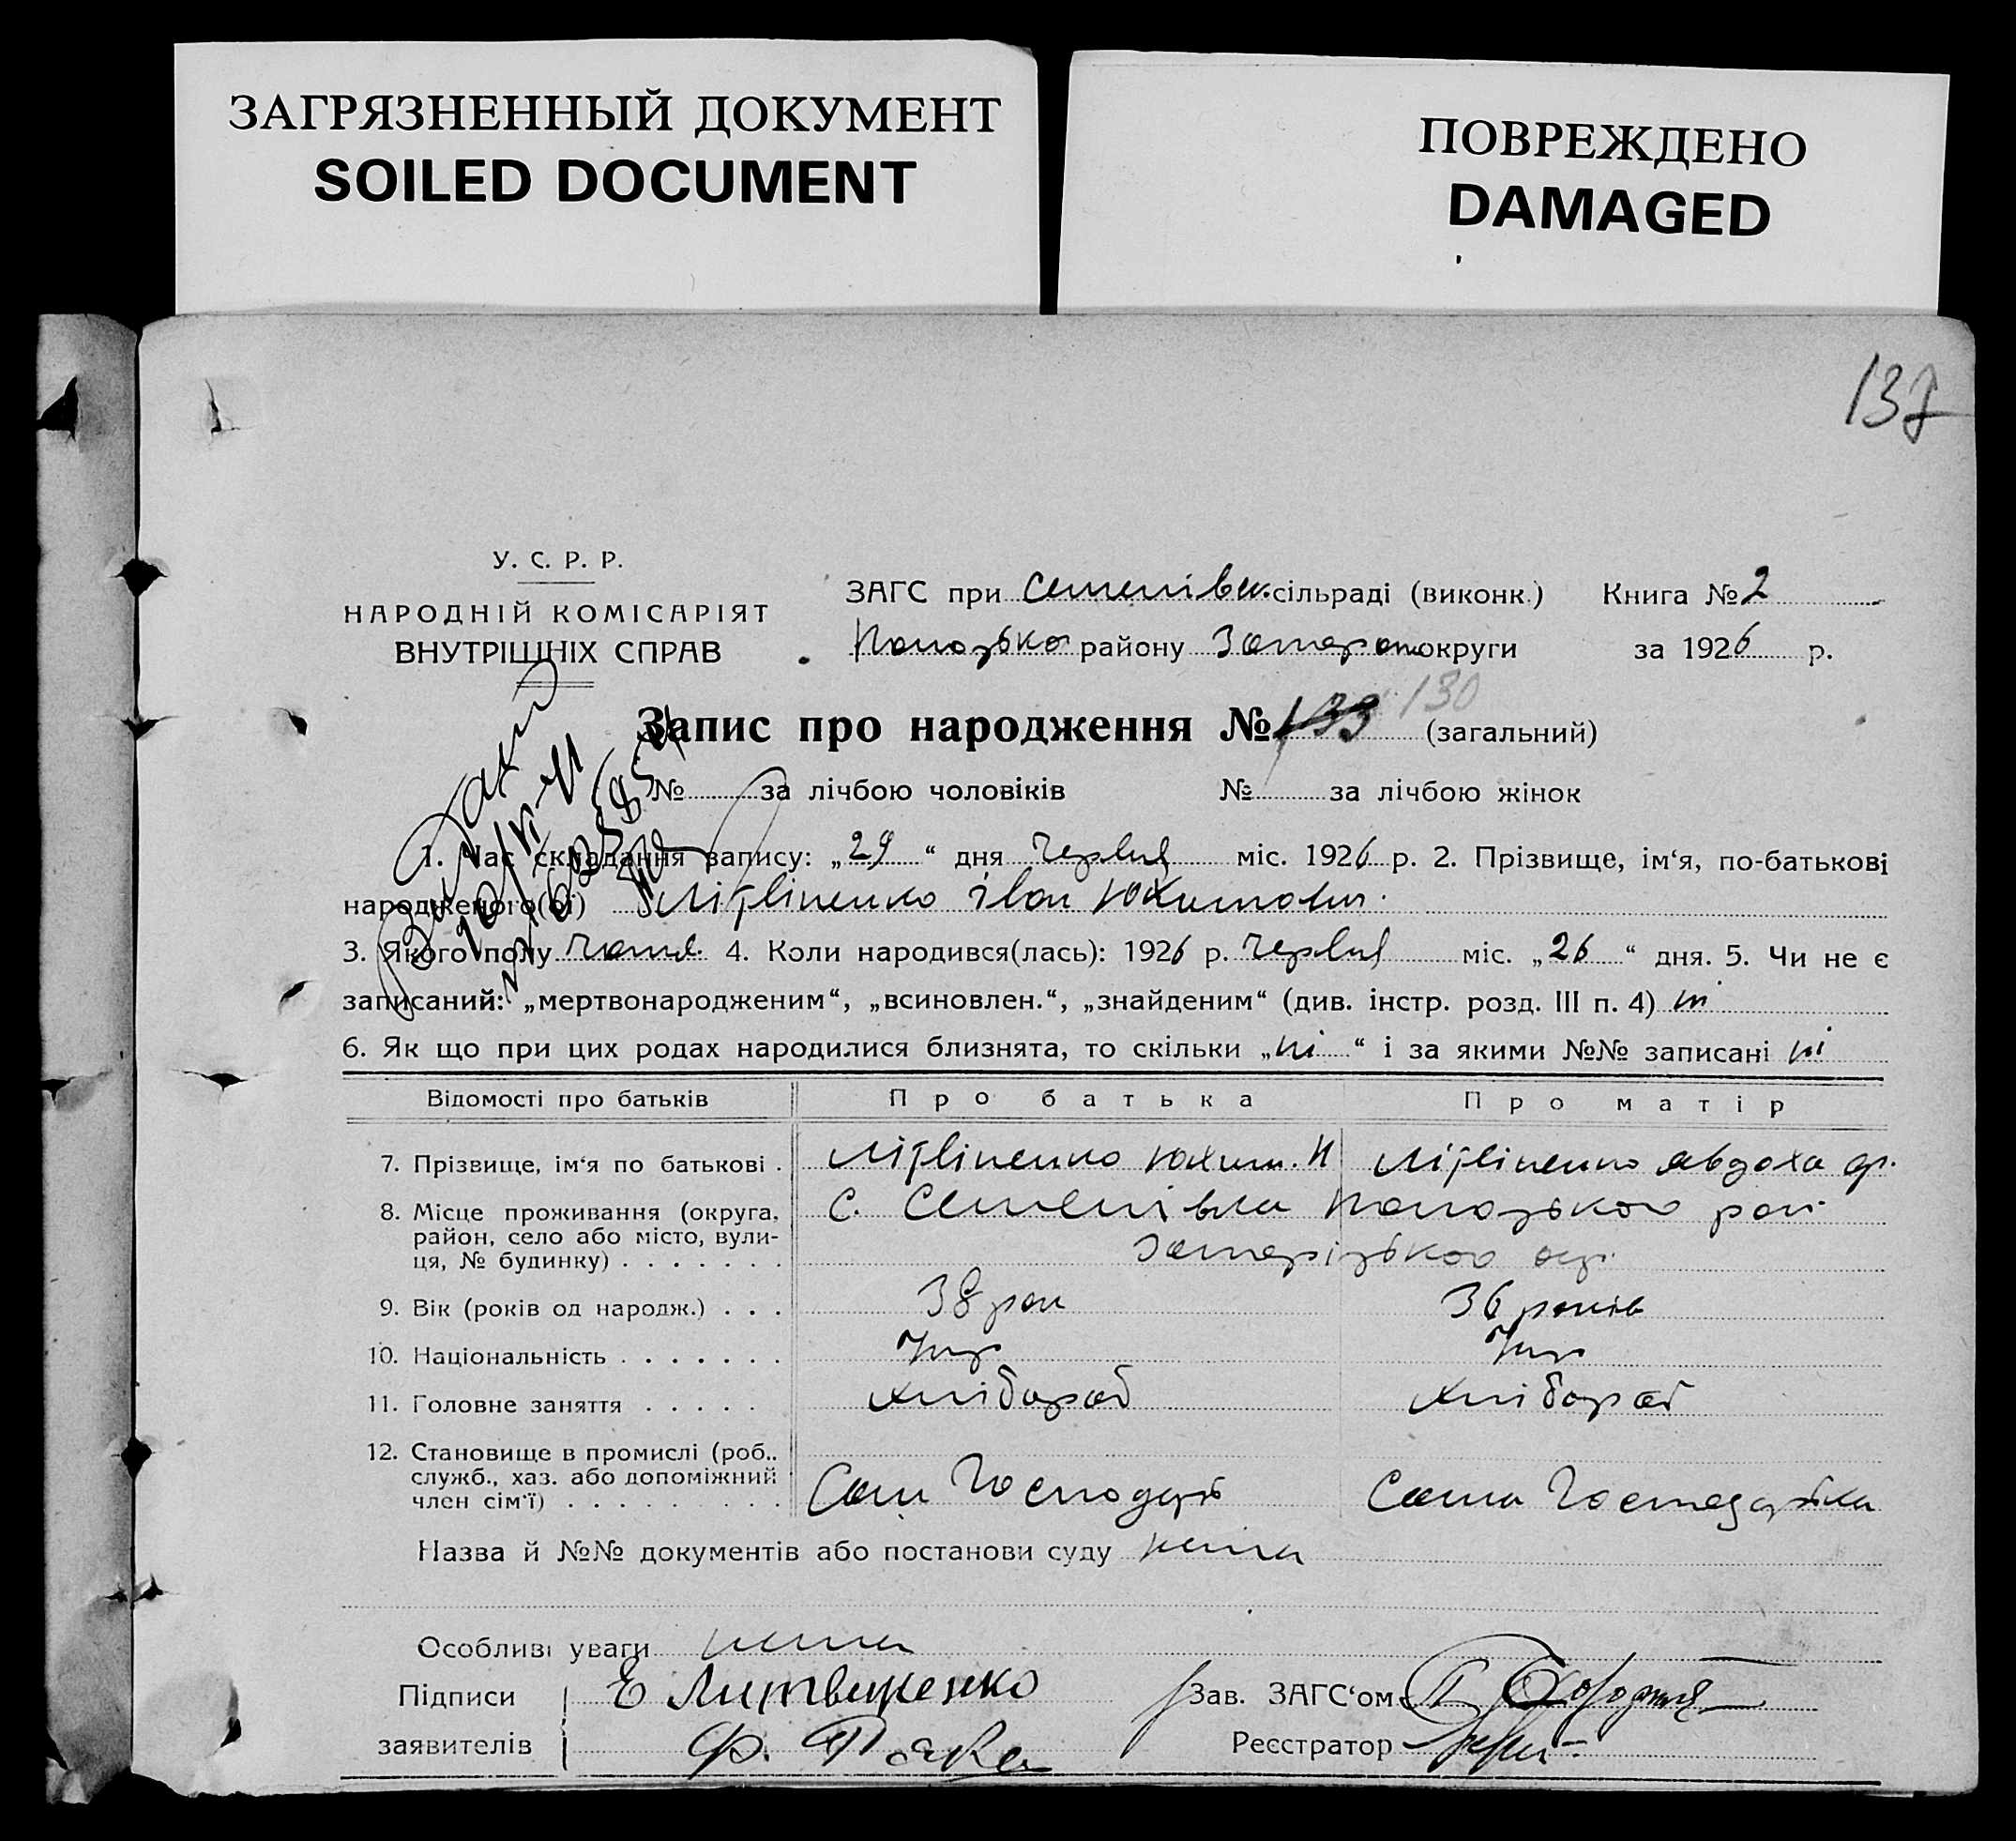 ЗАГРЯЗНЕННЫЙ ДОКУМЕНТ
SOILED DOCUMENT
ПОВРЕЖДЕНО
DAMAGED
137
У. С. Р. Р.
НАРОДНІЙ КОМІСАРІЯТ
ВНУТРІШНІХ СПРАВ
ЗАГС при Семенівськ. сільраді (виконк.) Книга № 2
району округи за 1926 р.
Запис про народження № 133 130 (загальний)
№ за лічбою чоловіків № за лічбою жінок
1. Час складання запису: „29“ дня червня міс. 1926 р. 2. Прізвище, ім‘я, по-батькові
народженого(ої) Літвіненко Іван Юхимович.
3. Якого полу 4. Коли народився(лась): 1926 р. червня міс. „26“ дня. 5. Чи не є
записаний: „мертвонародженим“, „всиновлен.“, „знайденим“ (див. інстр. розд. III п. 4) ні
6. Як що при цих родах народилися близнята, то скільки „ні“ і за якими №№ записані ні
Відомості про батьків Про батька Про матір
7. Прізвище, ім‘я по батькові . Літвіненко Юхим. И Літвіненко Явдоха
8. Місце проживання (округа, район, село або місто, вулиця, № будинку) . . . . . . . с. Семенівка
Запорізького окр.
9. Вік (років од народж.) . . . 38 рок 36 років
10. Національність . . . . . . . Укр Укр
11. Головне заняття . . . . . хлібороб хлібороб
12. Становище в промислі (роб.. служб., хаз. або допоміжний член сім‘ї) . . . . . . . . . Сам Господарь Сама Господарька
Назва й №№ документів або постанови суду нема
Особливі уваги нема
Підписи Е Литвиненко Зав. ЗАГС‘ом
заявителів Ф. Реєстратор